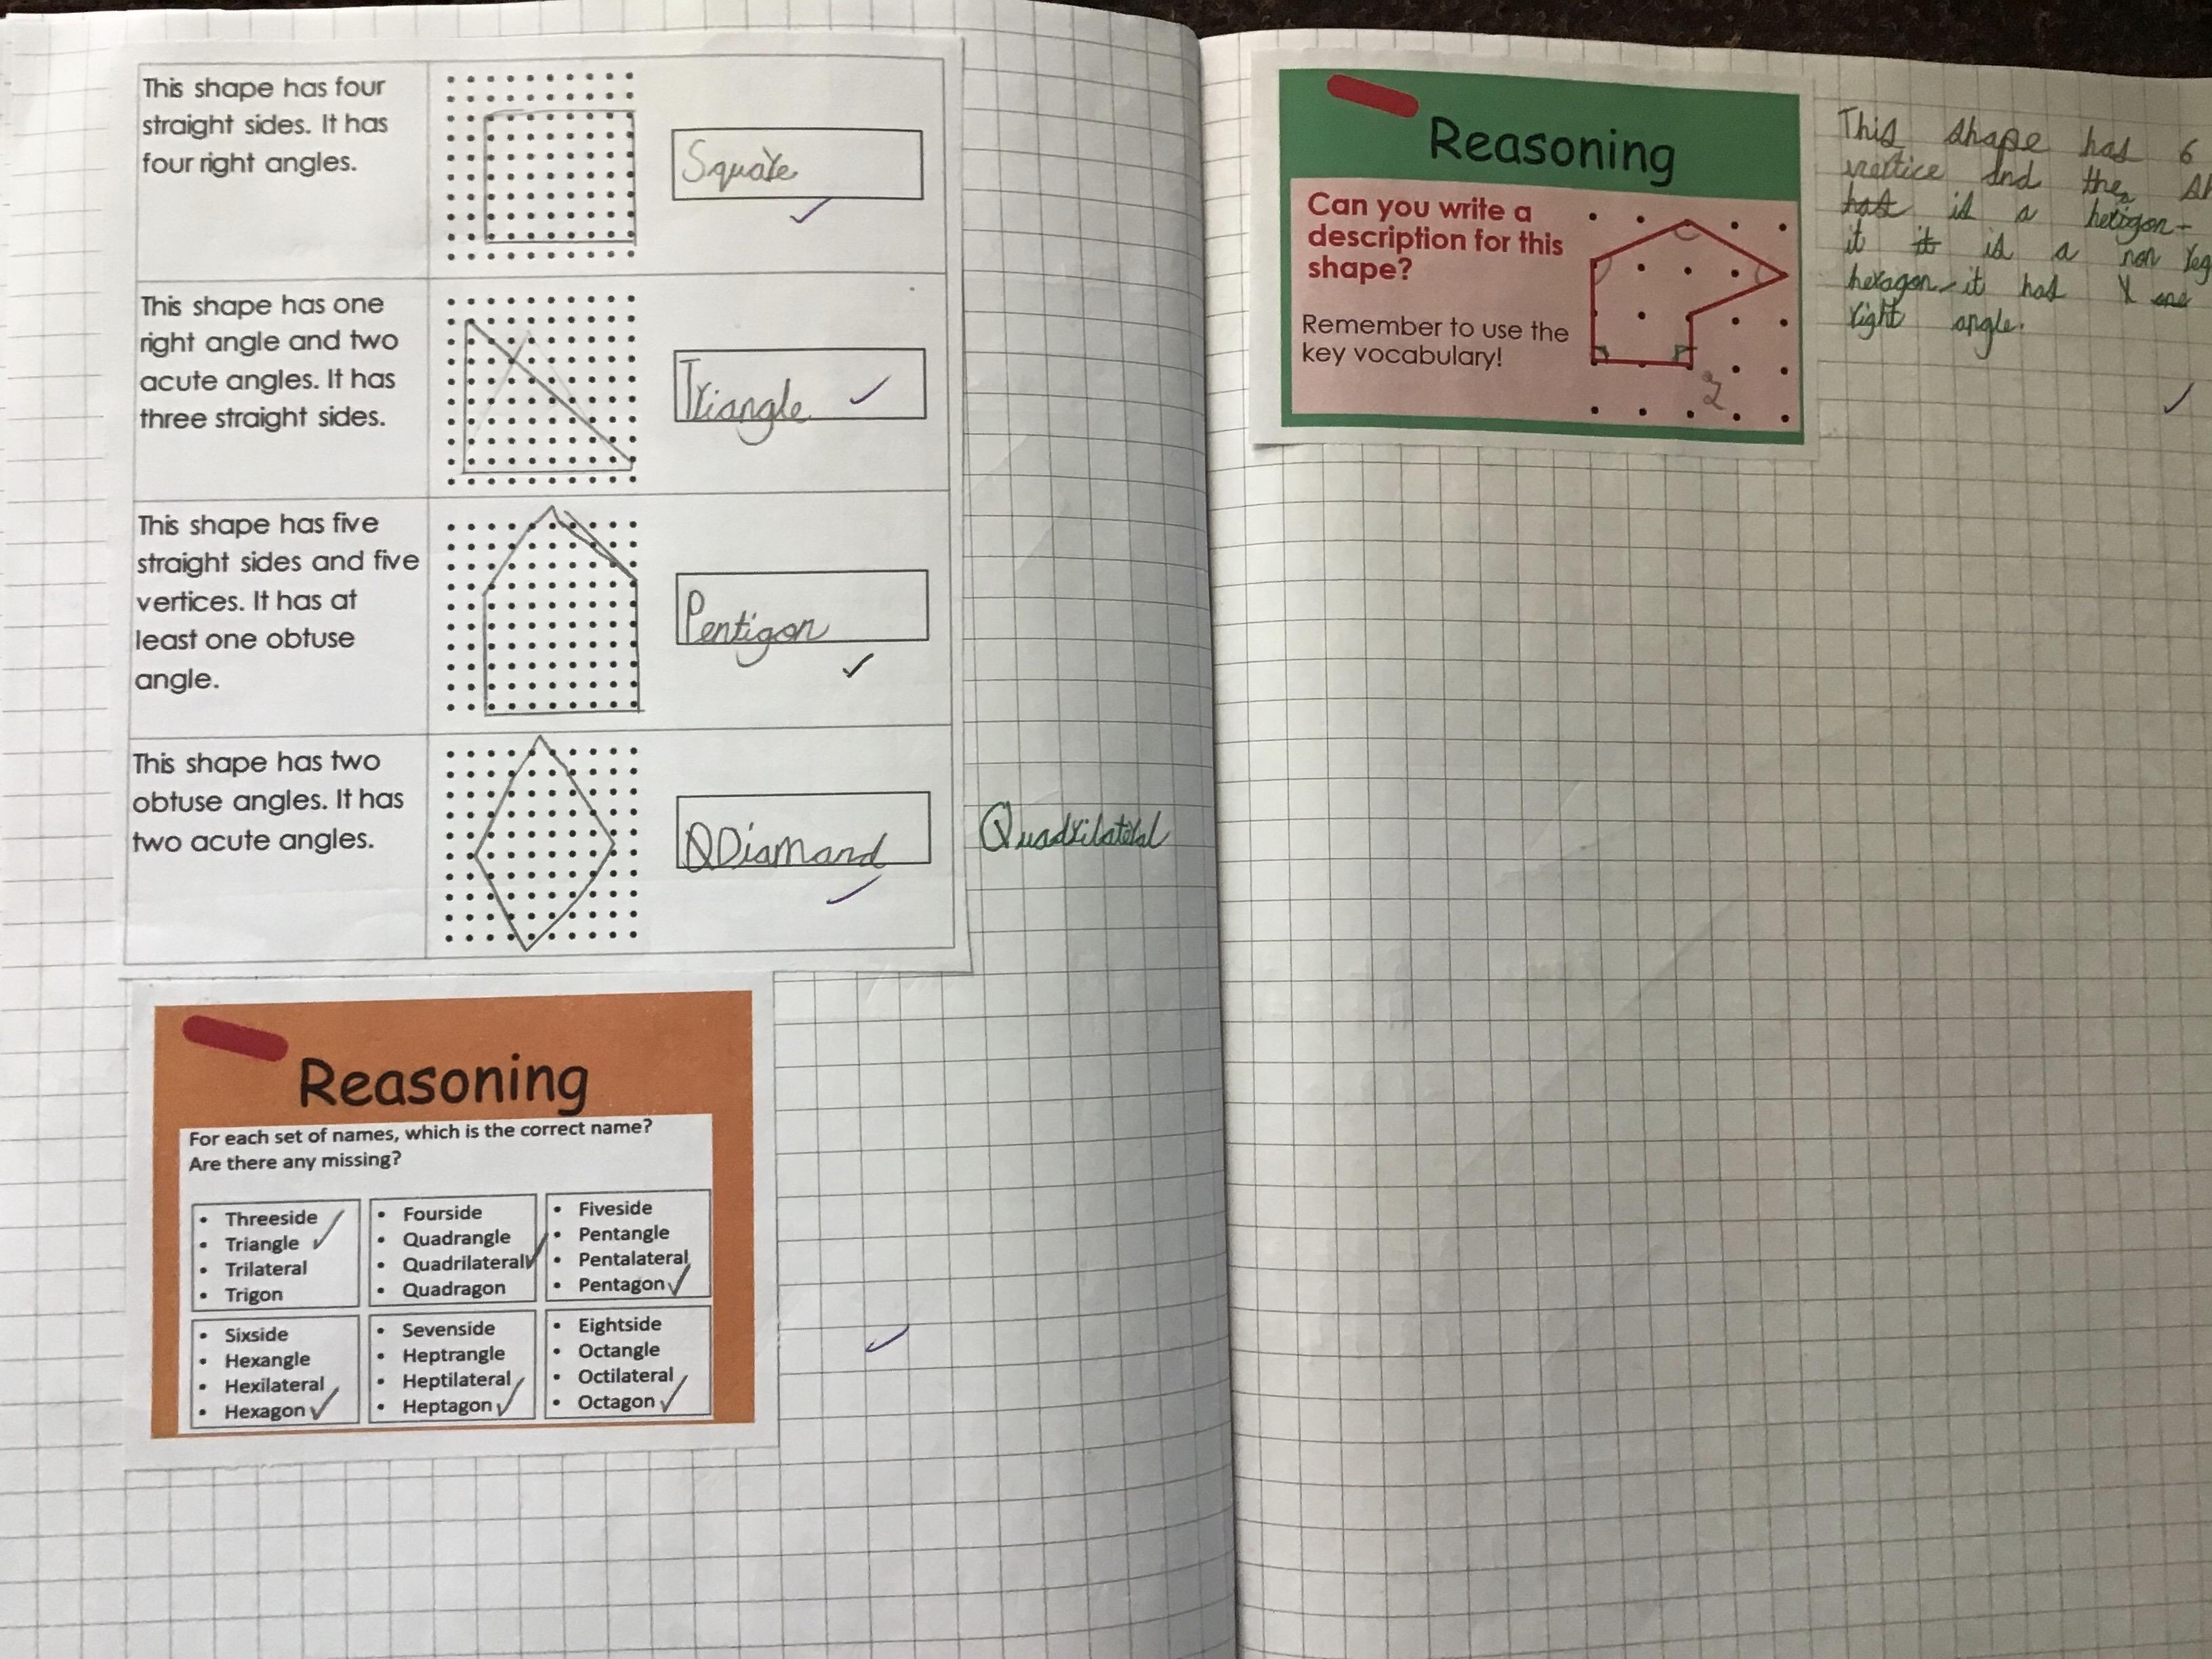 This shape has four
straight sides. It has
four right angles.
Square
This shape has one
right angle and two
acute angles. It has
three straight sides.
Triangle
This shape has five
straight sides and five
vertices. It has at
least one obtuse
angle.
Pentigon
This shape has two
obtuse angles. It has
two acute angles.
QDiamand
Quadrilateral
Reasoning
For each set of names, which is the correct name?
Are there any missing?
• Threeside
• Triangle
• Trilateral
• Trigon
• Fourside
• Quadrangle
• Quadrilateral
• Quadragon
• Fiveside
• Pentangle
• Pentalateral
• Pentagon
• Sixside
• Hexangle
• Hexilateral
• Hexagon
• Sevenside
• Heptrangle
• Heptilateral
• Heptagon
• Eightside
• Octangle
• Octilateral
• Octagon
Reasoning
Can you write a
description for this
shape?
Remember to use the
key vocabulary!
2
This shape has 6
vertice and the
has is a hetigon-
it it is a non reg
hexagon-it had one
right angle.